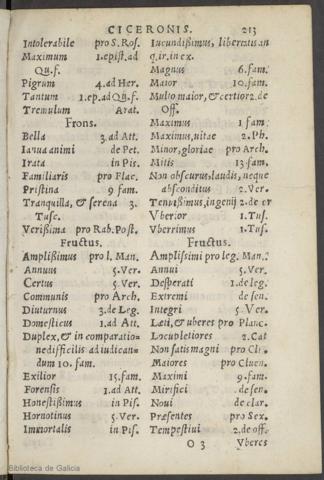 CICERONIS. 213
Intolerabile pro S. Ros.
Maximum 1. epist. ad
Qu. f.
Pigrum 4. ad Her.
Tantum 1. ep. ad Qu. f.
Tremulum Arat.
Frons.
Bella 3. ad Att.
Ianua animi de Pet.
Irata in Pis.
Familiaris pro Flac.
Pristina 9 fam.
Tranquilla, & serena 3.
Tusc.
Verißima pro Rab. Post.
Fructus.
Amplißimus pro l. Man.
Annuus 5. Ver.
Certus 5. Ver.
Communis pro Arch.
Diuturnus 3. de Leg.
Domesticus 1. ad Att.
Duplex, & in comparatio=
ne difficilis ad iudican=
dum 10. fam.
Exilior 15. fam.
Forensis 1. ad Att.
Honestißimus in Pis.
Hornotinus 5. Ver.
Immortalis in Pis.
Iucundißimus, libertatis an
q. ir. in ex.
Magnus 6. fam.
Maior 10. fam.
Multo maior, & certior 2. de
Off.
Maximus 1 fam.
Maximus, uitae 2. Ph.
Minor, gloriae pro Arch.
Mitis 13. fam.
Non obscurus laudis, neque
absconditus 2. Ver.
Tenuißimus, ingenij 2. de or
Vberior 1. Tus.
Vberrimus 1. Tus.
Fructus.
Amplissimi pro leg. Man.
Annui 5. Ver.
Desperati 1. de leg.
Extremi de sen.
Integri 5. Ver.
Lati, & uberes pro Planc.
Locupletiores 2. Cat
Non satis magni pro Clu.
Maiores pro Cluen.
Maximi 9. fam.
Mirifici de sen.
Noui de clar.
Præsentes pro Sex.
Tempestiui 2. de off.
O 3 Vberes
Biblioteca de Galicia